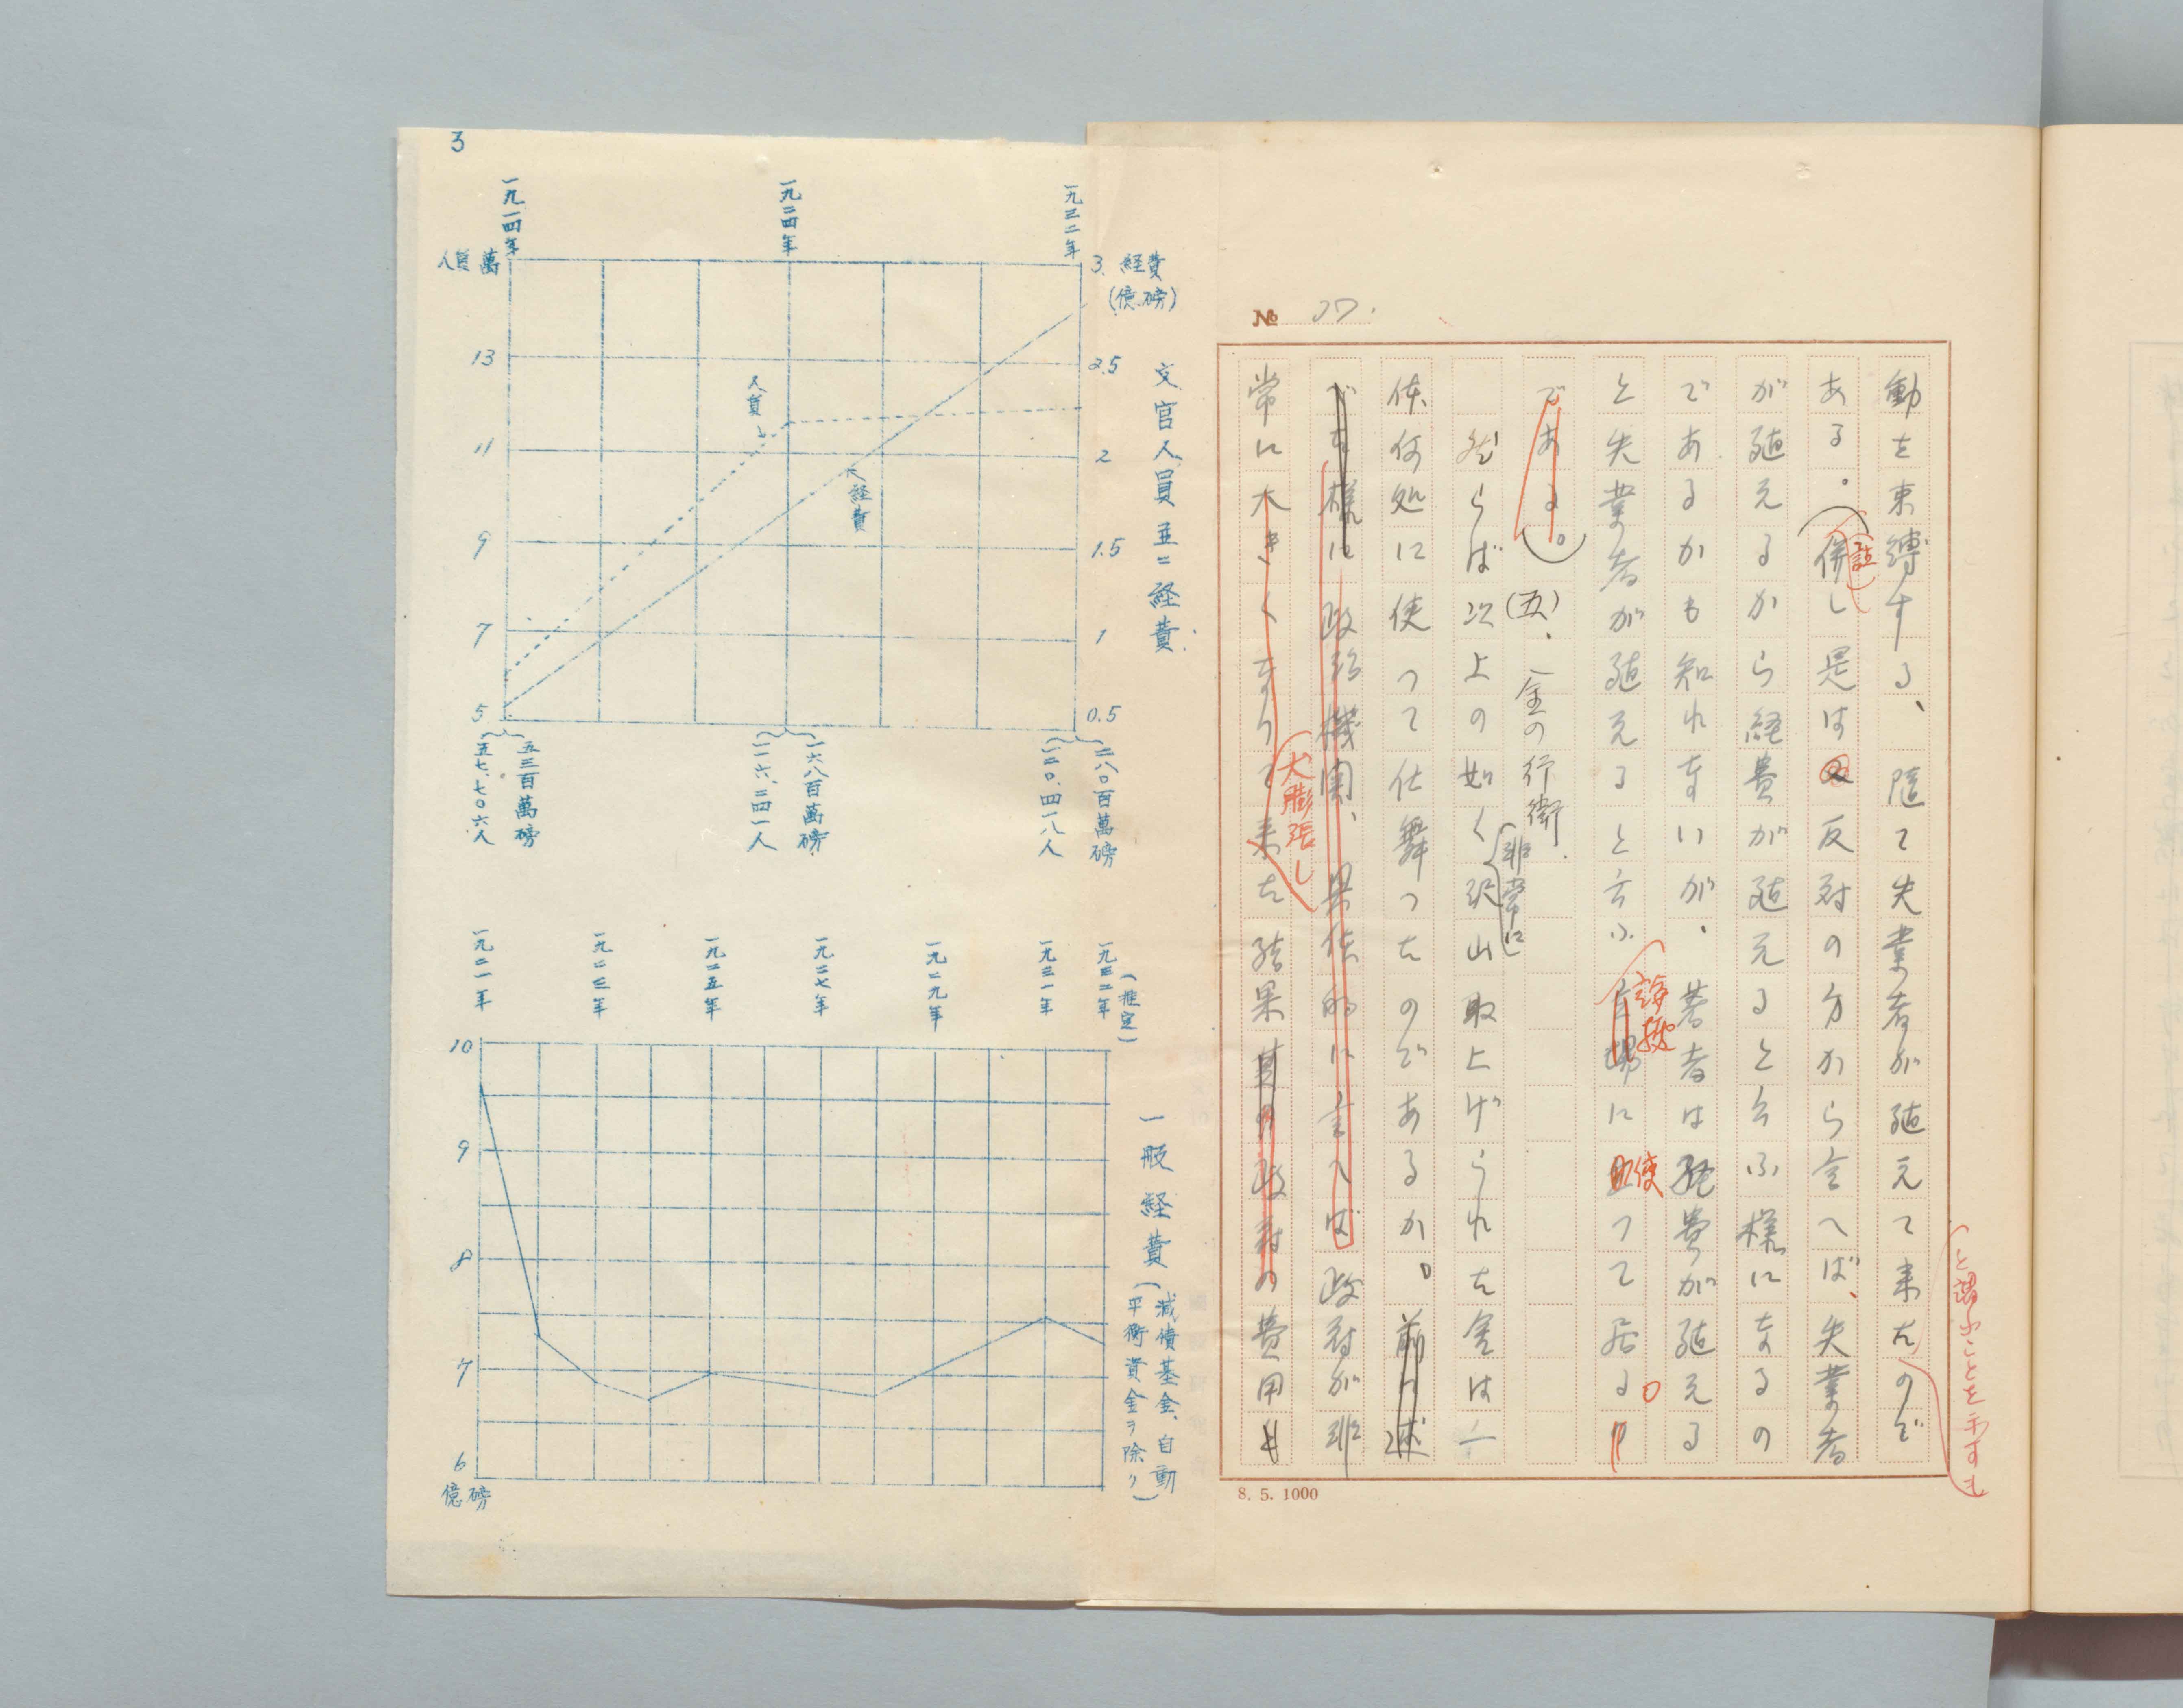 № 37.
動を束縛する、隨て失業者が殖えて来たので
と謂ふことを示すも
ある。(併し是は又反対の方から云へば、失業者
註
が殖えるから経費が殖えると云ふ様になるの
であるかも知れないが、著者は経費が殖える
と失業者が殖えると云ふ立場に立つて居るの
使
である。)
(五)、金の行衛
然らば次上の如く沢山取上げられた金は一
非常に
体何処に使つて仕舞つたのであるか。前に述
べた様に政治機関、具体的に言へば政府が非
常に大きくなりて来た結果其の政府の費用も
大膨張し
8. 5. 1000
3
文官人員並ニ経費
一九一四年
一九二四年
一九三二年
人員 萬
13
11
9
7
5
3. 経費
(億磅)
2.5
2
1.5
1
0.5
人員
経費
五三百萬磅
五七、七〇六人
一六八百萬磅
一一六、二四一人
二八〇百萬磅
一二〇、四一八人
一般経費(減債基金、自動
平衡資金ヲ除ク)
一九二一年
一九二三年
一九二五年
一九二七年
一九二九年
一九三一年
一九三二年
(推定)
10
9
8
7
6
億磅